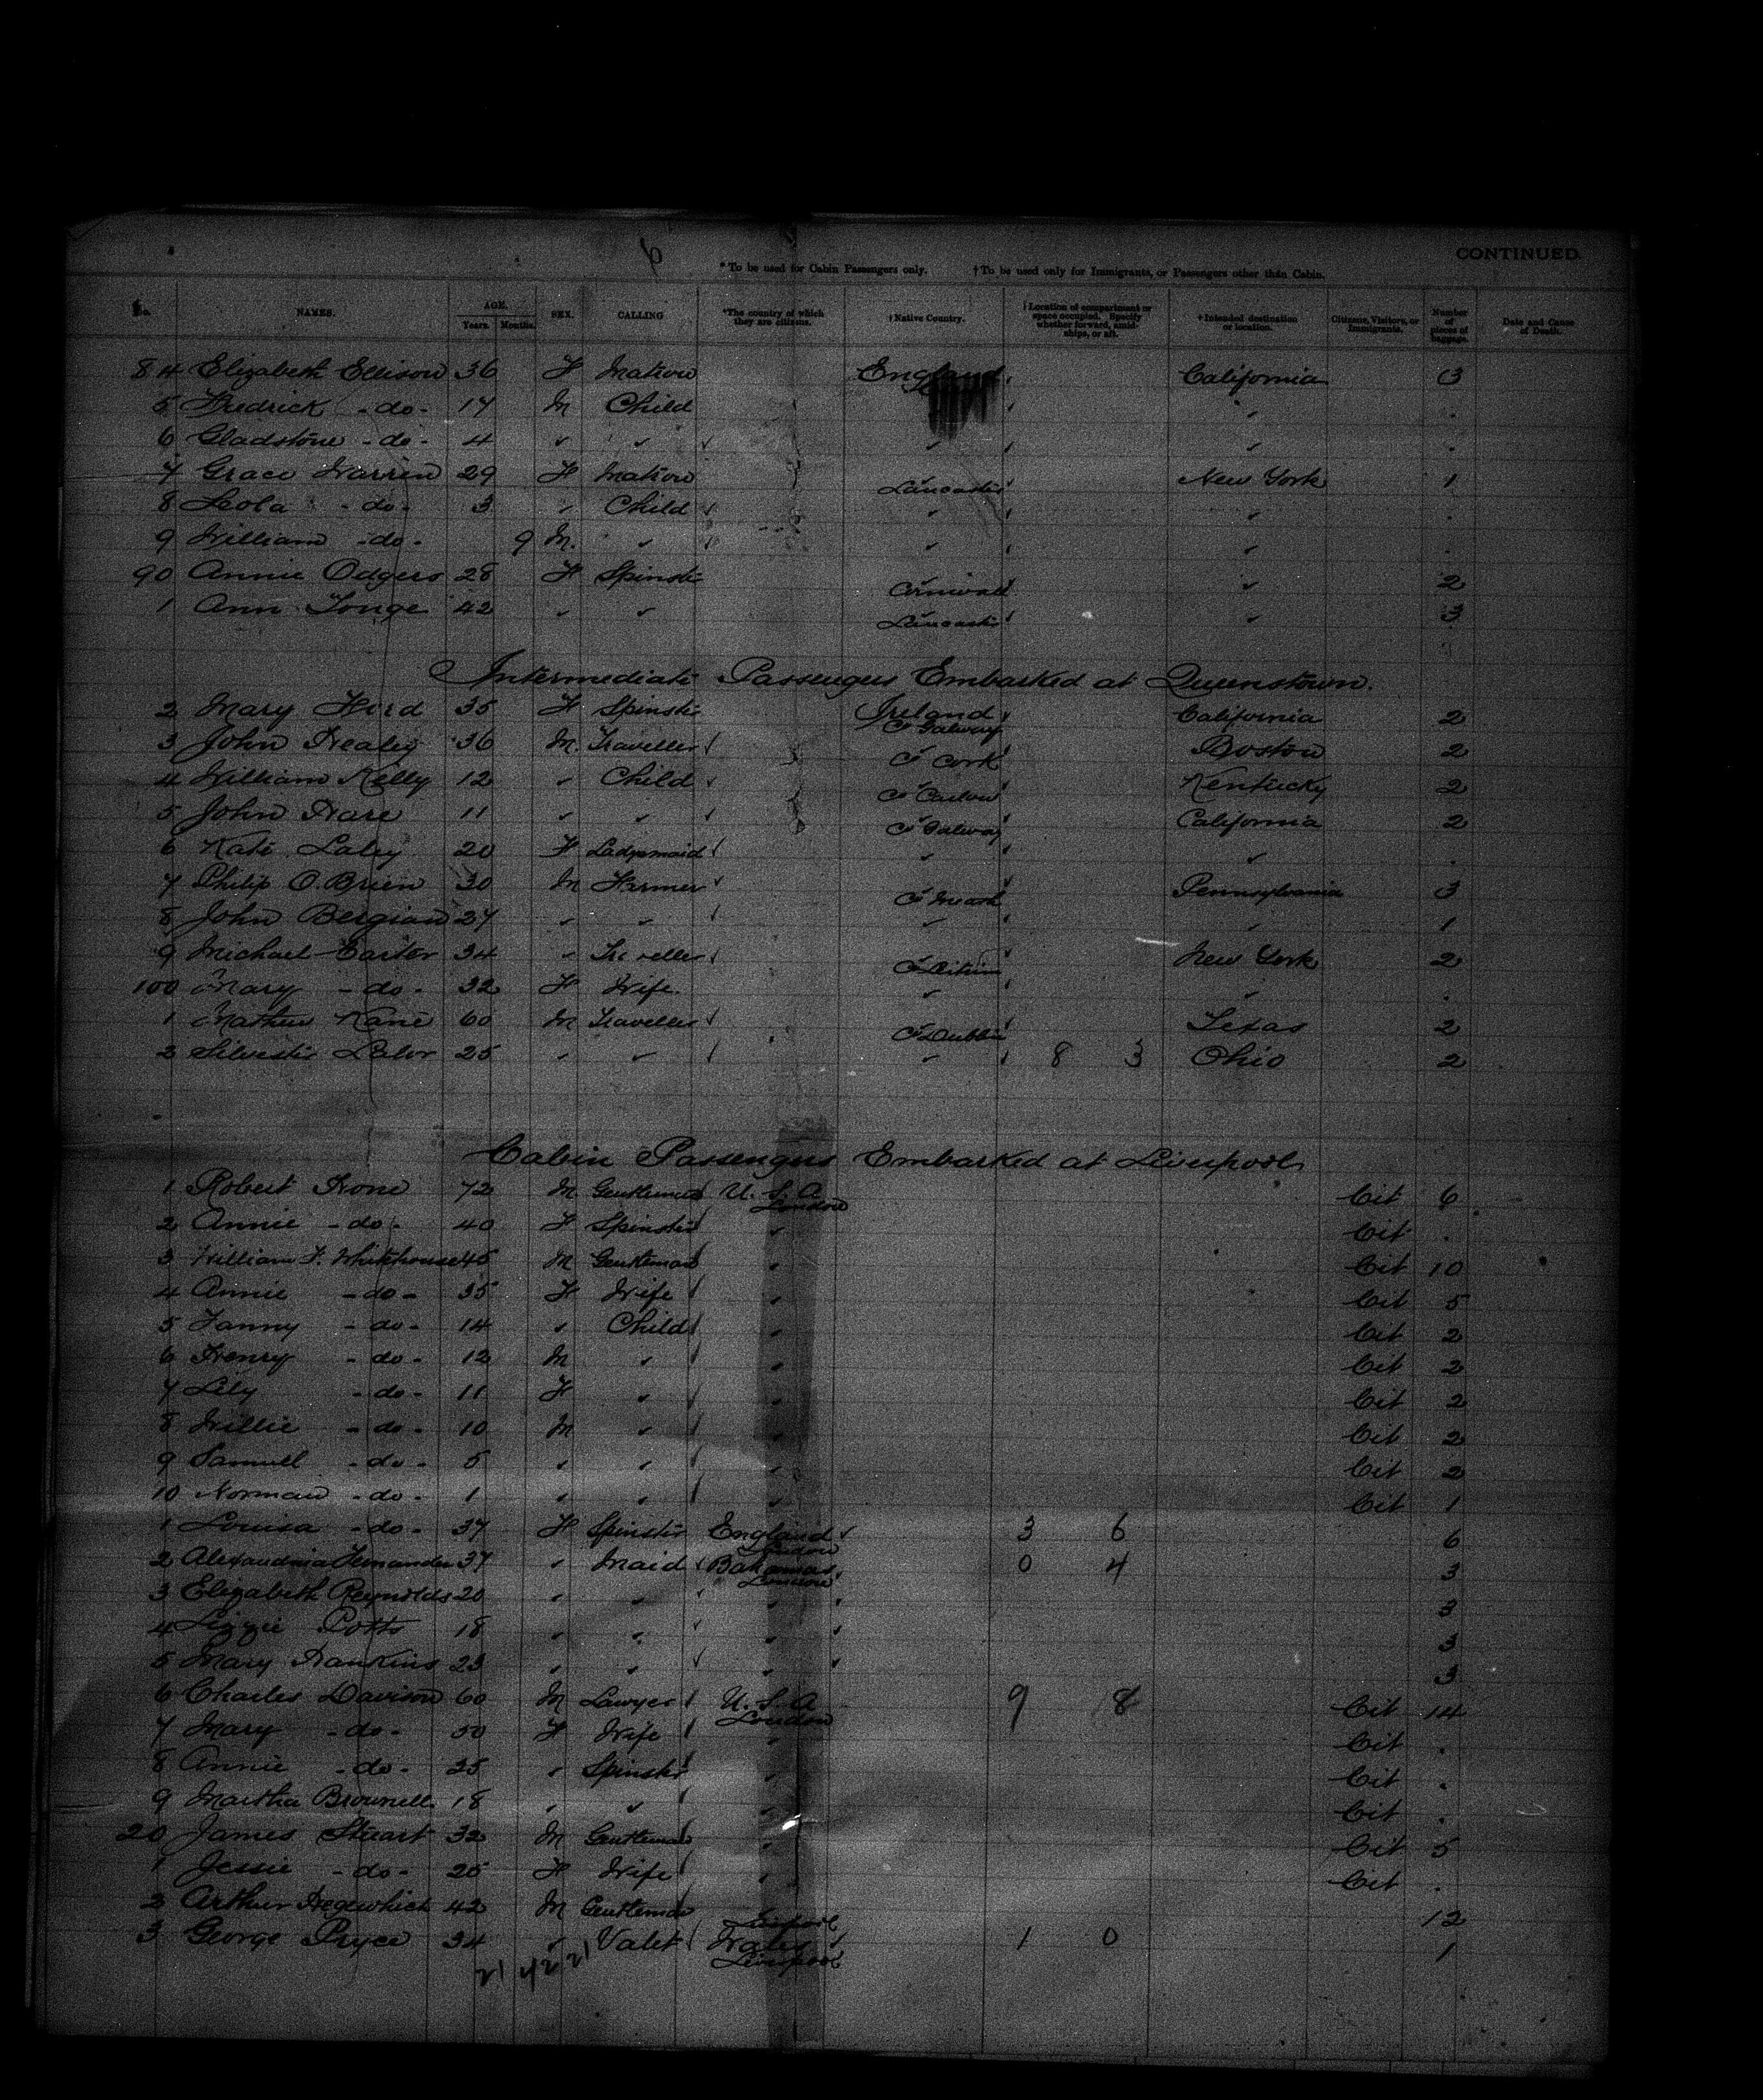 6
CONTINUED.
* To be used for Cabin Passengers only. † To be used only for Immigrants, or Passengers other than Cabin.
No. NAMES. AGE. Years. Months. SEX. CALLING *The country of which they are citizens. †Native Country. †Location of compartment or space occupied. Specify whether forward, amidships, or aft. †Intended destination or location. Citizens, Visitors, or Immigrants. Number of pieces of baggage. Date and Cause of Death.
84 Elizabeth Ellison 36 F Matron England California 3
5 Fredrick -do- 17 M Child "
6 Gladstone -do- 4 " " " "
7 Grace Warren 29 F Matron Lancaster New York 1
8 Leola -do- 3 " Child " "
9 William -do- 9 M. " " "
90 Annie Odgers 28 F Spinster Cornwall " 2
1 Ann Tonge 42 " " Lancaster " 3
Intermediate Passengers Embarked at Queenstown.
2 Mary Hurd 35 F Spinster Ireland Co Galway California 2
3 John Healey 36 M. Traveller Co Cork Boston 2
4 William Kelly 12 " Child Co Carlow Kentucky 2
5 John Hare 11 " " Co Galway California 2
6 Kate Laley 20 F Ladysmaid " "
7 Philip O.Brien 30 M Farmer Co Meath Pennsylvania 3
8 John Bergian 27 " " " " 1
9 Michael Carter 34 " Traveller New York 2
100 Mary -do- 32 F Wife. " "
1 Mathew Kane 60 M Traveller Co Dublin Texas 2
2 Silvester Lalor 25 " " " 8 3 Ohio 2
Cabin Passengers Embarked at Liverpool
1 Robert 72 M. Gentleman U.S.A London Cit 6
2 Annie -do- 40 F Spinster " Cit
3 William F. Whitehouse 45 M Gentleman " Cit 10
4 Annie -do- 35 F Wife " Cit 5
5 Fanny -do- 14 " Child " Cit 2
6 Henry -do- 12 M " " Cit 2
7 Lily -do- 11 F " " Cit 2
8 Willie -do- 10 M " " Cit 2
9 Samuel -do- 5 " " " Cit 2
10 Norman -do- 1 " " " Cit 1
1 Louisa -do- 37 F Spinster England London 3 6 6
2 Alexandria Hernander 37 " Maid Bahamas London 0 4 3
3 Elizabeth Reynolds 20 " " " 3
4 Lizzie Potts 18 " " " 3
5 Mary Hankins 23 " " " 3
6 Charles Davison 60 M Lawyer U.S.A London 9 8 Cit 14
7 Mary -do- 50 F Wife " Cit
8 Annie -do- 25 " Spinster " Cit
9 Martha Brownell 18 " " " Cit
20 James Stuart 32 M Gentleman " Cit 5
1 Jessie -do- 25 F Wife " Cit
2 Arthur 42 M Gentleman Liverpool 12
3 George Pryce 34 " Valet Wales Liverpool 1 0 1
21 42 21